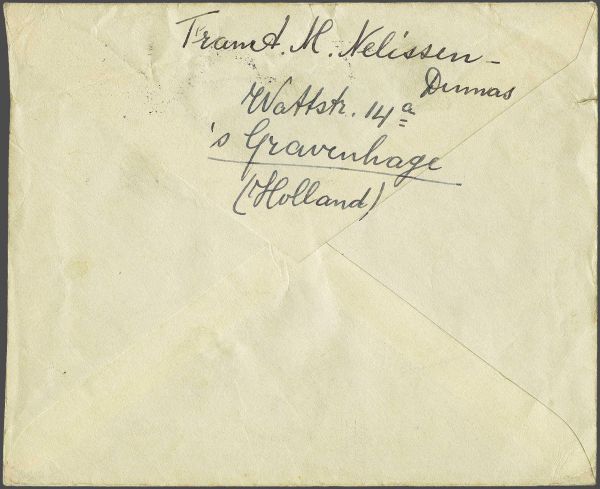 A. M. Nelissen-
Dumas
Wattstr. 14a
's Gravenhage
(Holland)